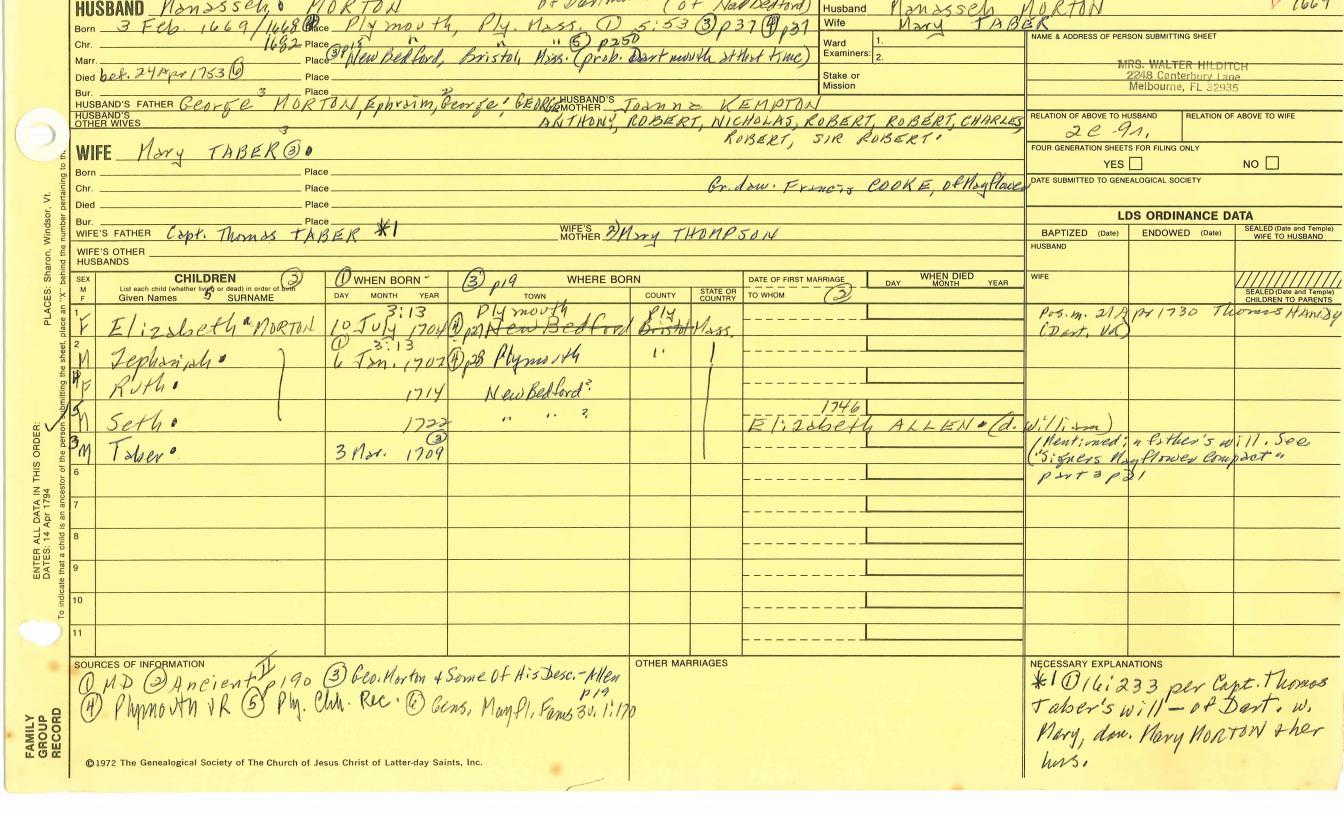 HUSBAND Manasseh MORTON (of New Bedford)
Husband Manasseh MORTON 1669
Born 3 Feb. 1669/1668 Place Plymouth, Ply. Mass. ① 5:53 ③ p37 ④ p31
Wife Mary TABER
Chr. 1682 Place " " " ⑤ p250
Marr. Place New Bedford, Bristol, Mass. (prob. Dartmouth at that time)
Died bef. 24 Apr 1753 ⑥ Place
Bur. Place
Ward Examiners: 1.
2.
Stake or Mission
NAME AND ADDRESS OF PERSON SUBMITTING SHEET
MRS. WALTER HILDITCH
2248 Canterbury Lane
Melbourne, FL 32935
HUSBAND'S FATHER George MORTON, Ephraim, George, GEORGE HUSBAND'S MOTHER Joanna KEMPTON
HUSBAND'S OTHER WIVES
ANTHONY, ROBERT, NICHOLAS, ROBERT, ROBERT, CHARLES,
ROBERT, SIR ROBERT
RELATION OF ABOVE TO HUSBAND RELATION OF ABOVE TO WIFE
FOUR GENERATION SHEETS FOR FILING ONLY
YES NO
DATE SUBMITTED TO GENEALOGICAL SOCIETY
WIFE Mary TABER ③
Born Place
Chr. Place Gr. dau. Francis COOKE, of Mayflower
Died Place
Bur. Place
WIFE'S FATHER Capt. Thomas TABER *1 WIFE'S MOTHER Mary THOMPSON
WIFE'S OTHER HUSBANDS
LDS ORDINANCE DATA
BAPTIZED (Date) ENDOWED (Date) SEALED (Date and Temple) WIFE TO HUSBAND
HUSBAND
WIFE
SEALED (Date and Temple) CHILDREN TO PARENTS
SEX M F CHILDREN ② List each child (whether living or dead) in order of birth Given Names SURNAME
① WHEN BORN DAY MONTH YEAR
③ p19 WHERE BORN TOWN COUNTY STATE OR COUNTRY
DATE OF FIRST MARRIAGE TO WHOM ③
WHEN DIED DAY MONTH YEAR
1 F Elizabeth MORTON 3:13 10 July 1704 ④ p27 Plymouth New Bedford Ply Bristol Mass. Pos. m. 21 Apr 1730 Thomas HANDY (Dart. VR)
2 M Zephaniah ① 3:13 6 Jan. 1707 ④ p28 Plymouth "
4 F Ruth 1714 New Bedford?
5 M Seth 1722 " " ? 1746 Elizabeth ALLEN (d. William)
3 M Taber 3 Mar. 1709 ② (Mentioned in father's will. See
("Signers Mayflower Compact"
part 3 p21
6
7
8
9
10
11
SOURCES OF INFORMATION
① MD ② Ancient II p190 ③ Geo. Morton & Some Of His Desc.-Allen p19
④ Plymouth VR ⑤ Ply. Chh. Rec. ⑥ Gens. Mayfl. Fams 1:170
OTHER MARRIAGES
NECESSARY EXPLANATIONS
*1 ① 16:233 per Capt. Thomas
Taber's will - of Dart. w.
Mary, dau. Mary MORTON & her
hus.
©1972 The Genealogical Society of The Church of Jesus Christ of Latter-day Saints, Inc.
FAMILY GROUP RECORD
ENTER ALL DATA IN THIS ORDER:
DATES: 14 Apr 1794
PLACES: Sharon, Windsor, Vt.
To indicate that a child is an ancestor of the person submitting the sheet, place an "X" behind the number pertaining to